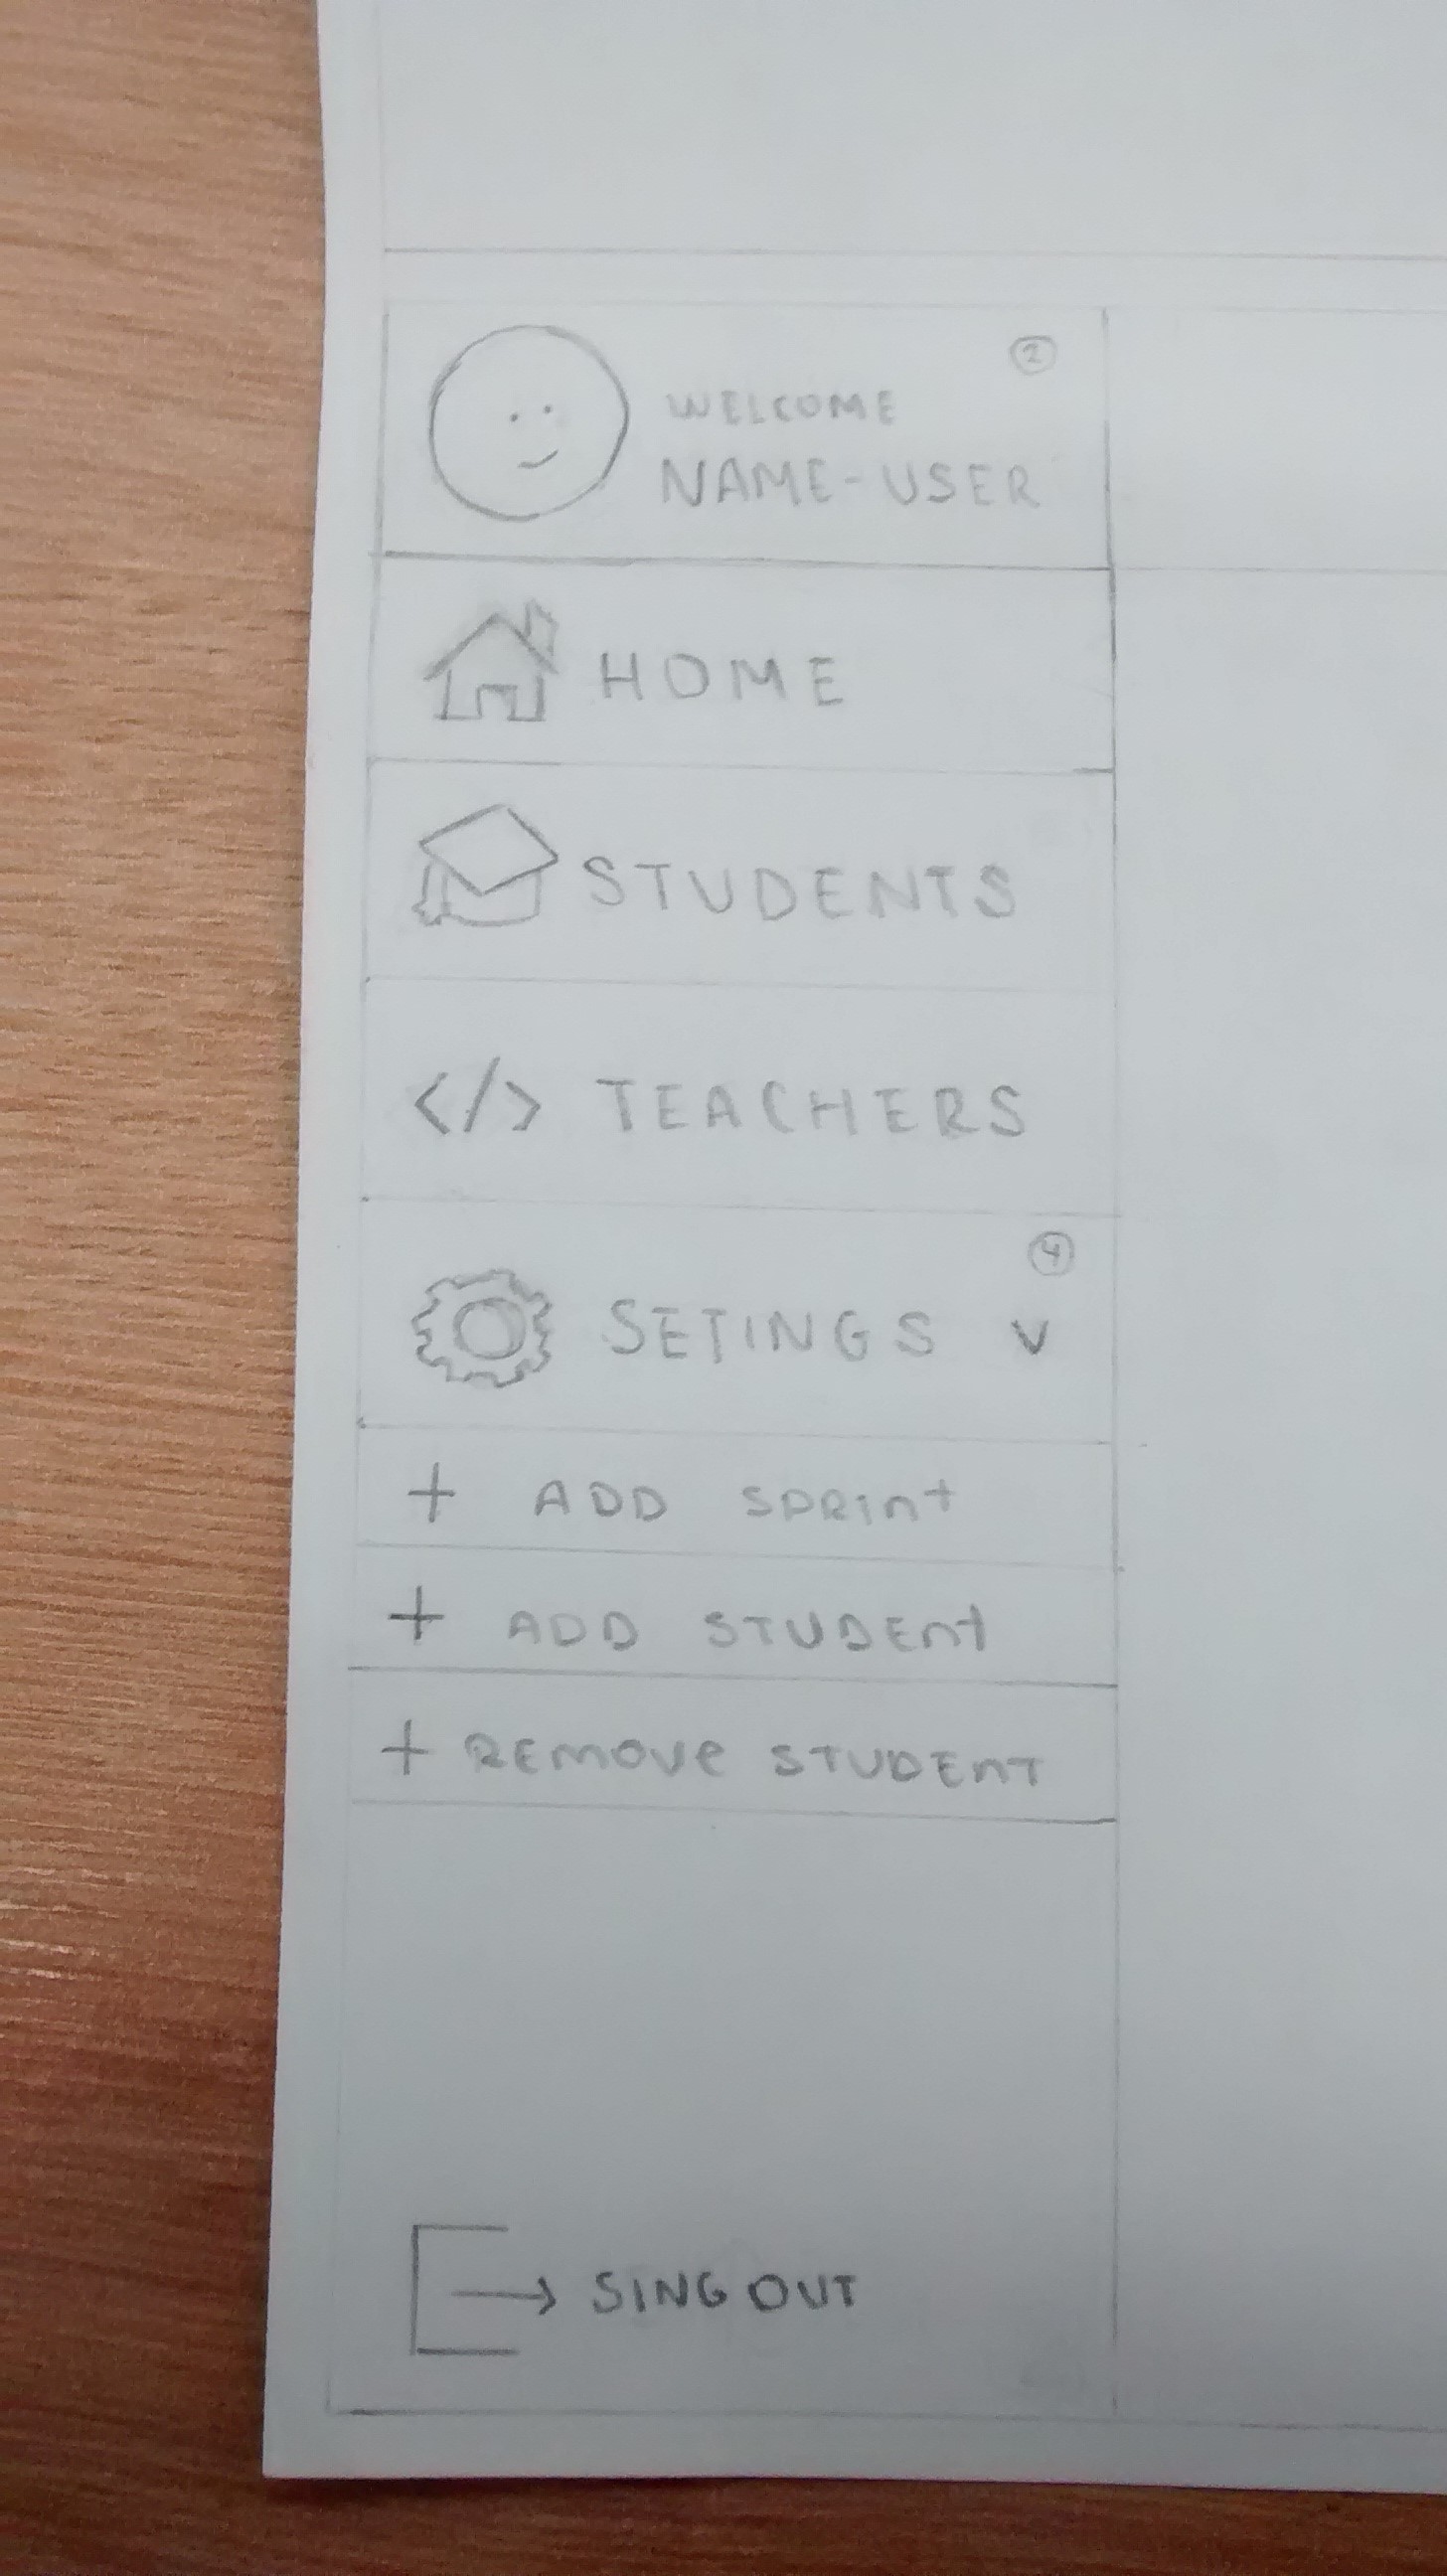 2
WELCOME
NAME-USER
HOME
STUDENTS
</> TEACHERS
4
SETINGS V
+ ADD SPRInt
+ ADD STUDEnt
+ REMOVE STUDEnT
SING OUT